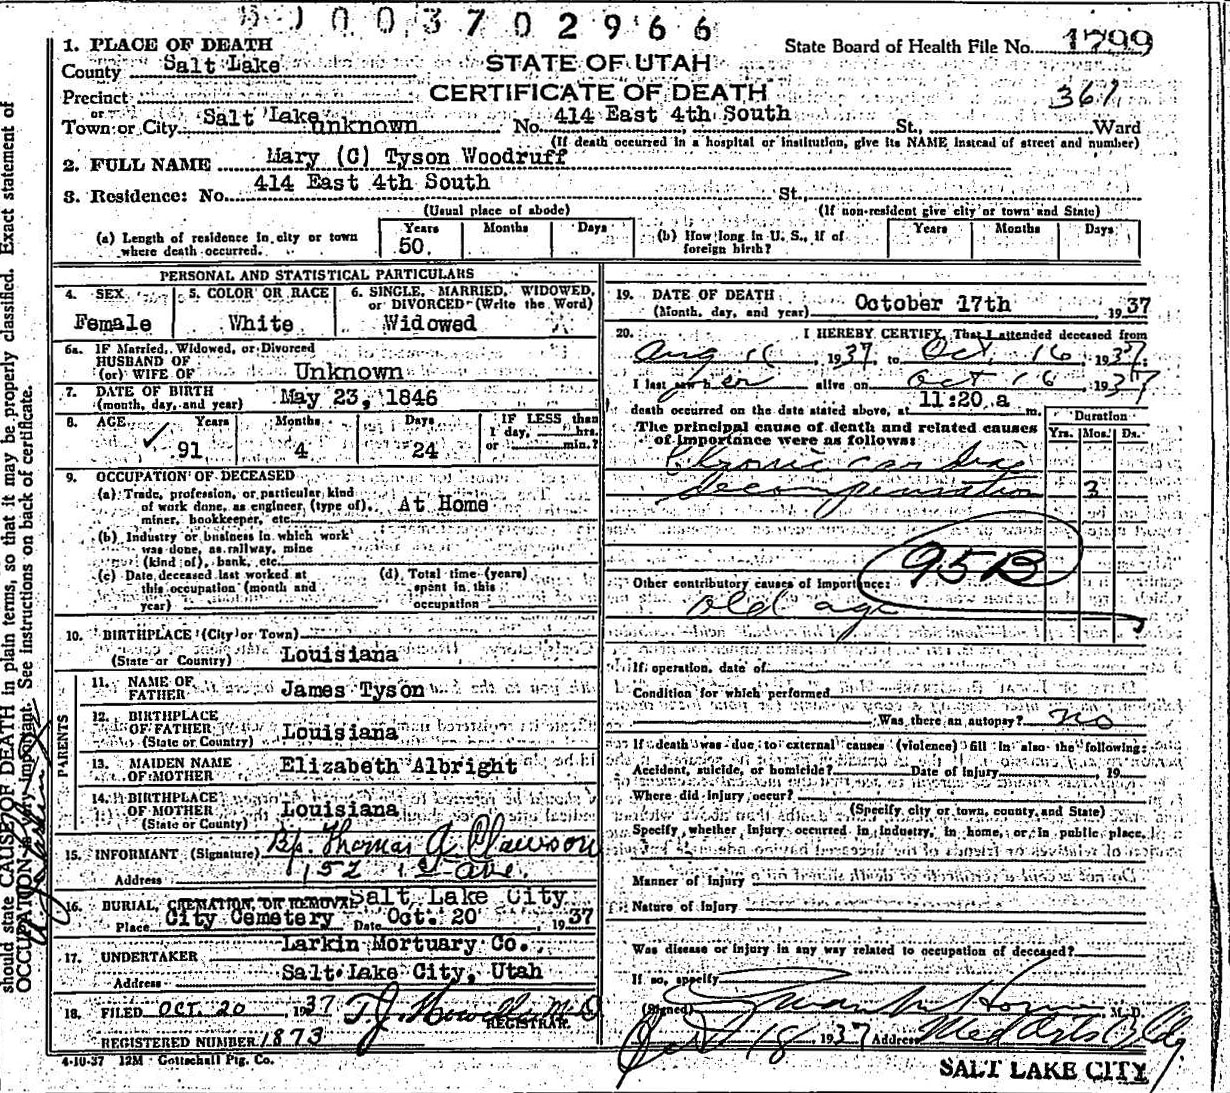 003702966
1. PLACE OF DEATH
County Salt Lake
STATE OF UTAH
CERTIFICATE OF DEATH
State Board of Health File No. 1799
361
Precinct
or
Town or City Salt Lake unknown No. 414 East 4th South St., Ward
(If death occurred in a hospital or institution, give its NAME instead of street and number)
2. FULL NAME Mary (C) Tyson Woodruff
3. Residence: No. 414 East 4th South St.
(Usual place of abode) (If non-resident give city or town and State)
(a) Length of residence in city or town where death occurred. Years 50 Months Days
(b) How long in U. S., if of foreign birth? Years Months Days
PERSONAL AND STATISTICAL PARTICULARS
4. SEX Female
5. COLOR OR RACE White
6. SINGLE, MARRIED, WIDOWED, or DIVORCED (Write the Word) Widowed
6a. IF Married, Widowed, or Divorced
HUSBAND OF
(or) WIFE OF Unknown
7. DATE OF BIRTH
(month, day, and year) May 23, 1846
8. AGE Years 91 Months 4 Days 24 IF LESS than 1 day, hrs. or min.?
9. OCCUPATION OF DECEASED
(a) Trade, profession, or particular kind of work done, as engineer, (type of), miner, bookkeeper, etc. At Home
(b) Industry or business in which work was done, as railway, mine (kind of), bank, etc.
(c) Date deceased last worked at this occupation (month and year)
(d) Total time (years) spent in this occupation
10. BIRTHPLACE (City or Town)
(State or Country) Louisiana
PARENTS
11. NAME OF FATHER James Tyson
12. BIRTHPLACE OF FATHER
(State or Country) Louisiana
13. MAIDEN NAME OF MOTHER Elizabeth Albright
14. BIRTHPLACE OF MOTHER
(State or Country) Louisiana
15. INFORMANT (Signature) Bp. Thomas A. Clawson
Address 152 1st Ave.
16. BURIAL, CREMATION, OR REMOVAL Salt Lake City
Place City Cemetery Date Oct. 20 1937
17. UNDERTAKER Larkin Mortuary Co.,
Address Salt Lake City, Utah
18. FILED OCT. 20 1937 T.J. Howells M.D.
REGISTRAR.
REGISTERED NUMBER 1873
4-10-37 12M Gottschall Ptg. Co.
19. DATE OF DEATH
(Month, day, and year) October 17th 1937
20. I HEREBY CERTIFY, That I attended deceased from
Aug 16, 1937, to Oct. 16, 1937.
I last saw her alive on Oct 16, 1937
death occurred on the date stated above, at 11:20 a m.
The principal cause of death and related causes of importance were as follows:
Duration
Yrs. Mos. Ds.
Chronic cardiac
decompensation 3
95B
Other contributory causes of importance:
old age
If operation, date of
Condition for which performed
Was there an autopsy? no
If death was due to external causes (violence) fill in also the following:
Accident, suicide, or homicide? Date of injury, 19
Where did injury occur?
(Specify city or town, county, and State)
Specify whether injury occurred in industry, in home, or in public place.
Manner of injury
Nature of injury
Was disease or injury in any way related to occupation of deceased?
If so, specify
(Signed) M. D.
Oct 18, 1937 Address Med Arts Bldg.
SALT LAKE CITY
should state CAUSE OF DEATH in plain terms, so that it may be properly classified. Exact statement of
OCCUPATION is very important. See instructions on back of certificate.